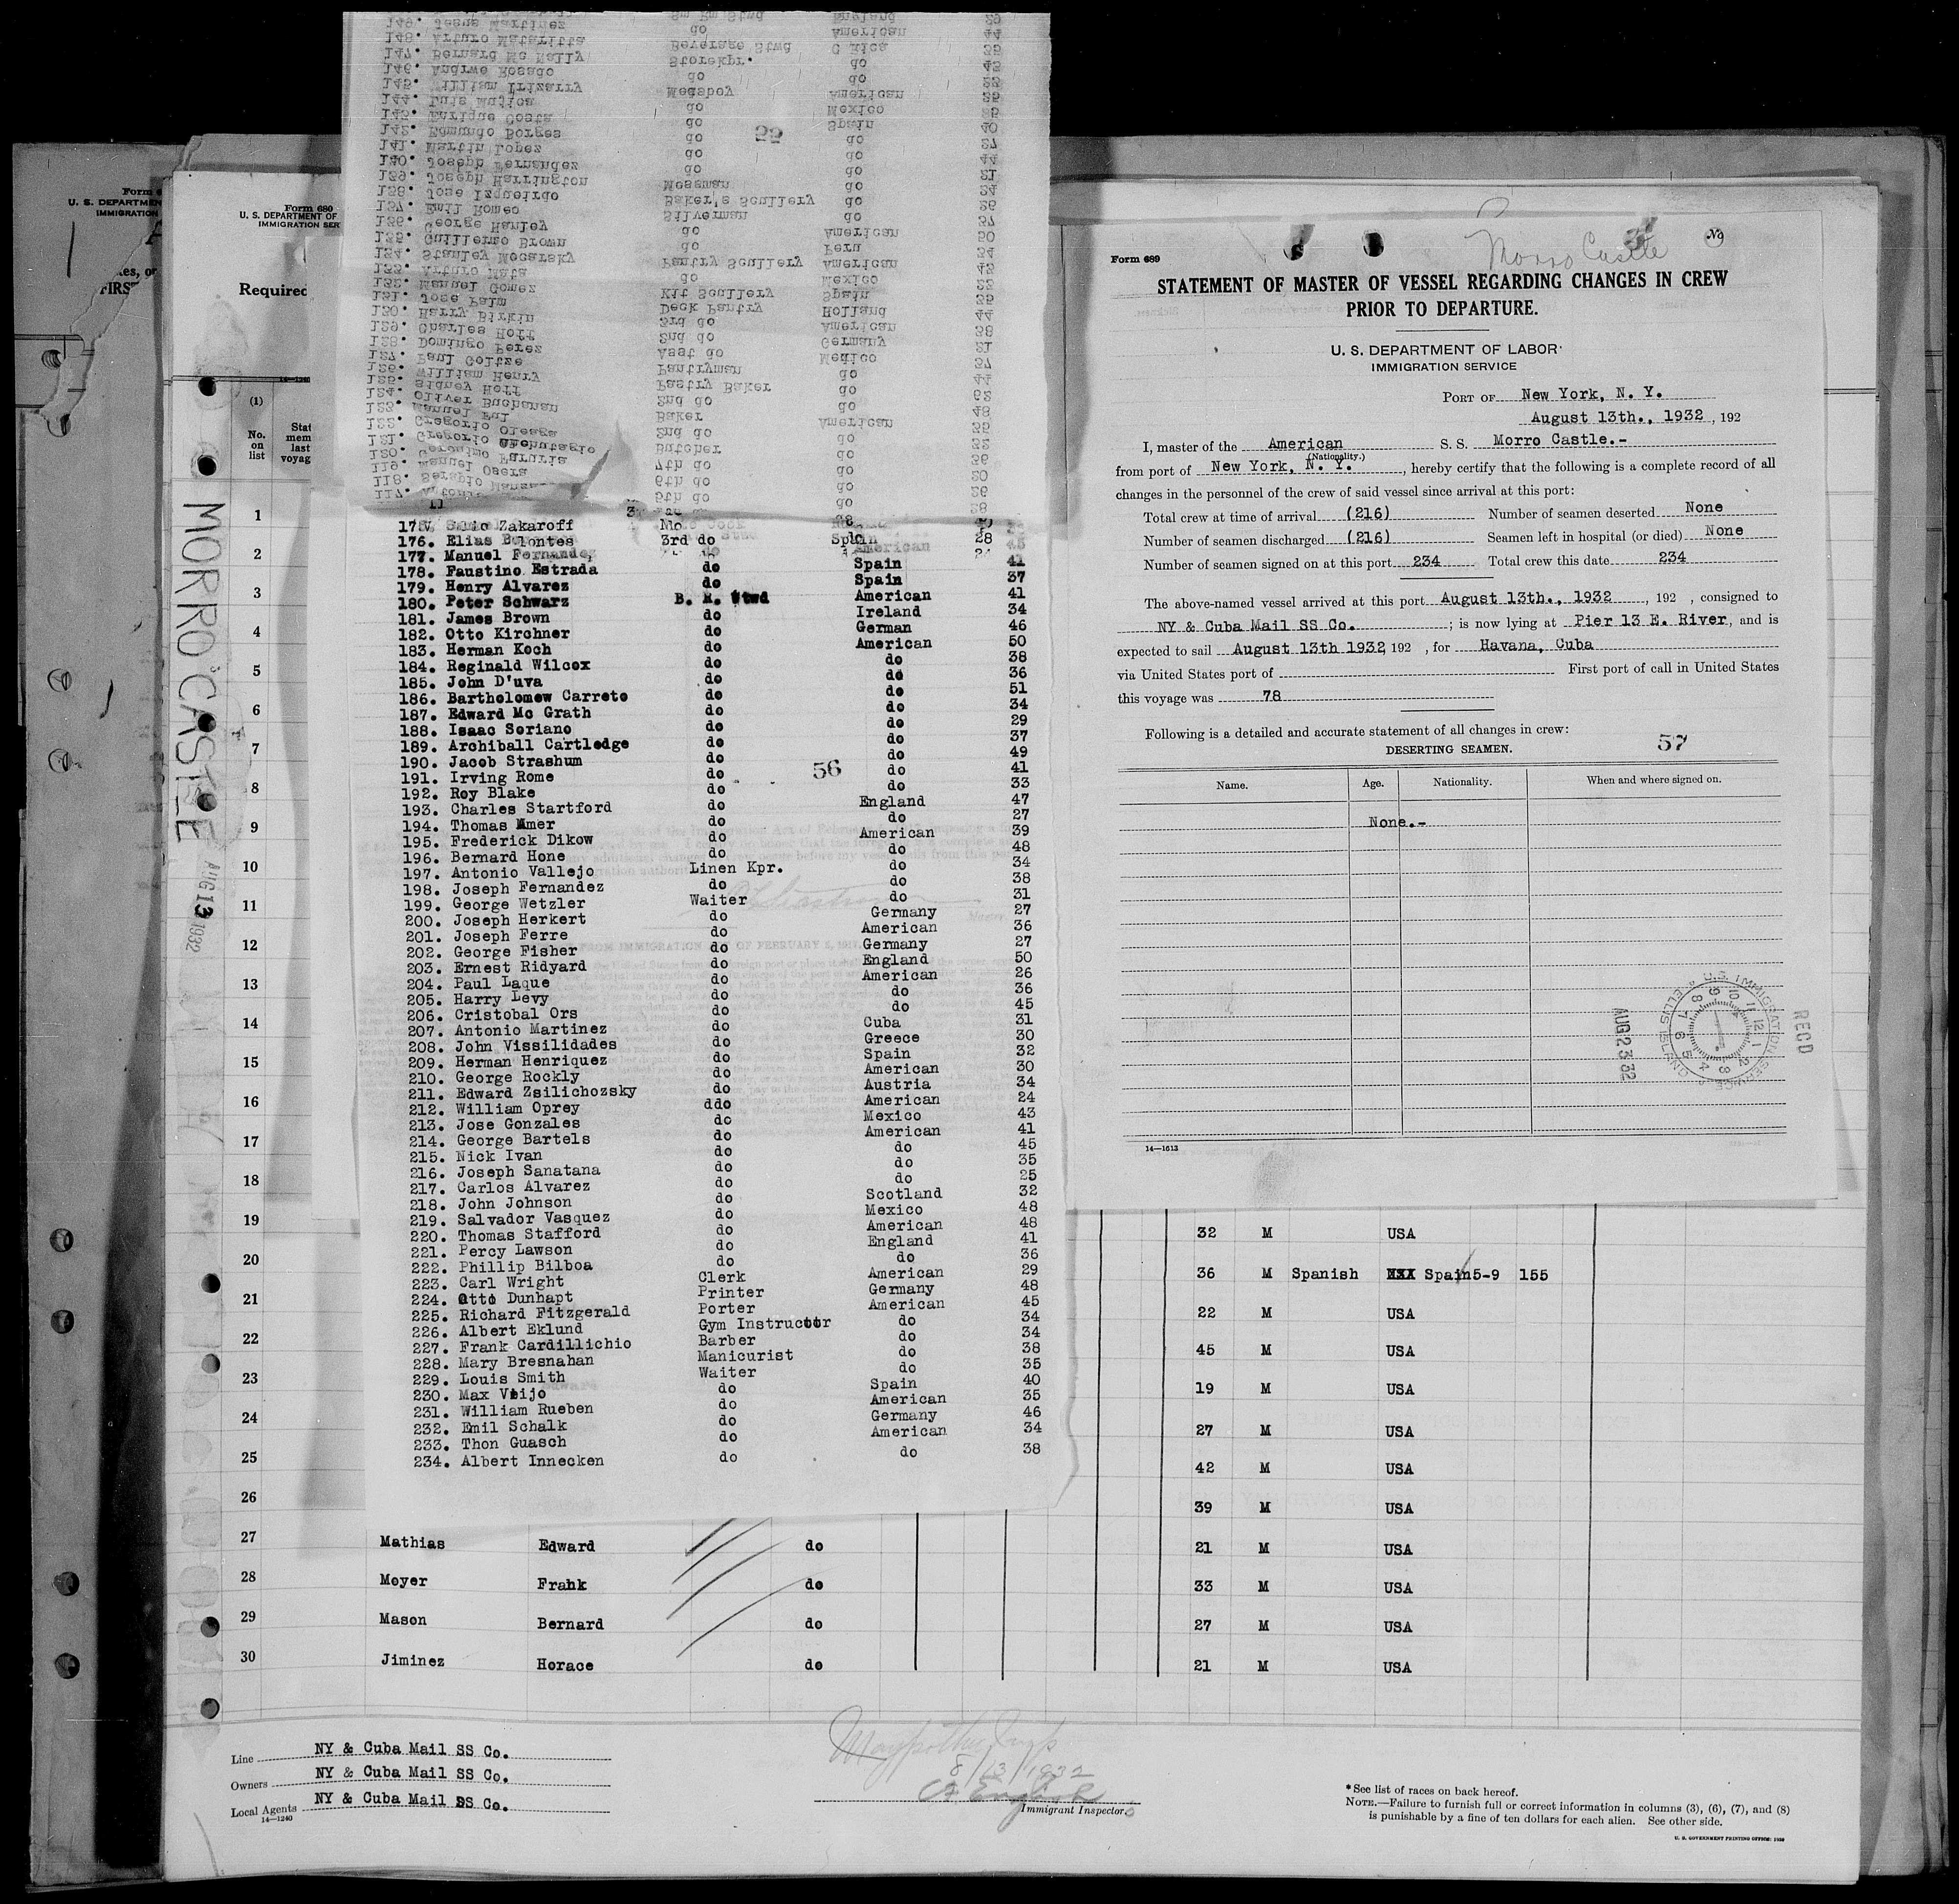 Form 680
U. S. DEPARTMENT OF
IMMIGRATION SER
Required
(1)
No. on list
MORRO CASTLE
AUG 13 1932
149. Jesus Martinez Sm Rm Stwd England 29
148. Arturo Mataritta do American 44
147. Bernard Mc Nally Beverage Stwd C Rica 35
146. Andrwe Rosado Storekpr. do 43
145. William Irizarry do do
144. Luis Mujica Messboy American
143. Enrique Costa do Mexico
142. Edmundo Borges do Spain 40
55
141. Martin Lopez do do
140. Joseph Fernandez do do 44
139. Joseph Harrington do do 21
138. Jose Izqueirdo Messman do
137. Emil Romeo Baker's Scullery do
136. George Hanley Silverman do
135. Guillermo Brown do American 50
134. Stanley Mocarsky do Peru
133. Arturo Mata Pantry Scullery American
132. Manuel Gomez do Mexico
131. Jose Palm Kit Scullery Spain
130. Harry Birkin Deck Pantry Holland 44
129. Charles Hoff 3rd do American
128. Domingo Perez 2nd do Germany
127. Paul Goltze Asst do Mexico
126. William Henry Pantryman do
125. Sidney Hoff Pastry Baker do
124. Oliver Buchanan 2nd do do
Baker American
Butcher do
7th do do
6th do do
5th do do
Zakaroff
176. Elias 3rd do Spain 28
177. Manuel Fernandez
178. Faustino Estrada do Spain 41
179. Henry Alvarez do Spain 37
180. Peter Schwarz B. R. Stwd American 41
181. James Brown do Ireland 34
182. Otto Kirchner do German 46
183. Herman Koch do American 50
184. Reginald Wilcox do do 38
185. John D'uva do do 36
186. Bartholomew Carreto do do 51
187. Edward Mc Grath do do 34
188. Isaac Soriano do do 29
189. Archiball Cartledge do do 37
190. Jacob Strashum do do 49
191. Irving Rome do 56 do 41
192. Roy Blake do do 33
193. Charles Startford do England 47
194. Thomas Amer do do 27
195. Frederick Dikow do American 39
196. Bernard Hone do do 48
197. Antonio Vallejo Linen Kpr. do 34
198. Joseph Fernandez do do 38
199. George Wetzler Waiter do 31
200. Joseph Herkert do Germany 27
201. Joseph Ferre do American 36
202. George Fisher do Germany 27
203. Ernest Ridyard do England 50
204. Paul Laque do American 26
205. Harry Levy do do 36
206. Cristobal Ors do do 45
207. Antonio Martinez do Cuba 31
208. John Vissilidades do Greece 30
209. Herman Henriquez do Spain 32
210. George Rockly do American 30
211. Edward Zsilichozsky do Austria 34
212. William Oprey ddo American 24
213. Jose Gonzales do Mexico 43
214. George Bartels do American 41
215. Nick Ivan do do 45
216. Joseph Sanatana do do 35
217. Carlos Alvarez do do 25
218. John Johnson do Scotland 32
219. Salvador Vasquez do Mexico 48
220. Thomas Stafford do American 48
221. Percy Lawson do England 41
222. Phillip Bilboa do do 36
223. Carl Wright Clerk American 29
224. Otto Dunhapt Printer Germany 48
225. Richard Fitzgerald Porter American 45
226. Albert Eklund Gym Instructor do 34
227. Frank Cardillichio Barber do 34
228. Mary Bresnahan Manicurist do 38
229. Louis Smith Waiter do 35
230. Max Veijo do Spain 40
231. William Rueben do American 35
232. Emil Schalk do Germany 46
233. Thon Guasch do American 34
234. Albert Innecken do do 38
Morro Castle
Form 689
STATEMENT OF MASTER OF VESSEL REGARDING CHANGES IN CREW
PRIOR TO DEPARTURE.
U. S. DEPARTMENT OF LABOR
IMMIGRATION SERVICE
PORT OF New York, N. Y.
August 13th., 1932, 192
I, master of the American S. S. Morro Castle.-
(Nationality.)
from port of New York, N. Y., hereby certify that the following is a complete record of all
changes in the personnel of the crew of said vessel since arrival at this port:
Total crew at time of arrival (216) Number of seamen deserted None
Number of seamen discharged (216) Seamen left in hospital (or died) None
Number of seamen signed on at this port 234 Total crew this date 234
The above-named vessel arrived at this port August 13th., 1932, 192 , consigned to
NY & Cuba Mail SS Co. ; is now lying at Pier 13 E. River, and is
expected to sail August 13th 1932, 192 , for Havana, Cuba
via United States port of First port of call in United States
this voyage was 78
Following is a detailed and accurate statement of all changes in crew:
57
DESERTING SEAMEN.
Name. Age. Nationality. When and where signed on.
None.-
U.S. IMMIGRATION SERVICE ELLIS ISLAND
RECD
AUG 23 32
14—1613
1
2
3
4
5
6
7
8
9
10
11
12
13
14
15
16
17
18
19 32 M USA
20 36 M Spanish Spain 5-9 155
21 22 M USA
22 45 M USA
23 19 M USA
24 27 M USA
25 42 M USA
26 39 M USA
27 Mathias Edward do 21 M USA
28 Meyer Frank do 33 M USA
29 Mason Bernard do 27 M USA
30 Jiminez Horace do 21 M USA
Line NY & Cuba Mail SS Co.
Owners NY & Cuba Mail SS Co.
Local Agents NY & Cuba Mail SS Co.
14—1240
8/13/1932
Immigrant Inspector.
*See list of races on back hereof.
NOTE.—Failure to furnish full or correct information in columns (3), (6), (7), and (8)
is punishable by a fine of ten dollars for each alien. See other side.
U. S. GOVERNMENT PRINTING OFFICE: 1930